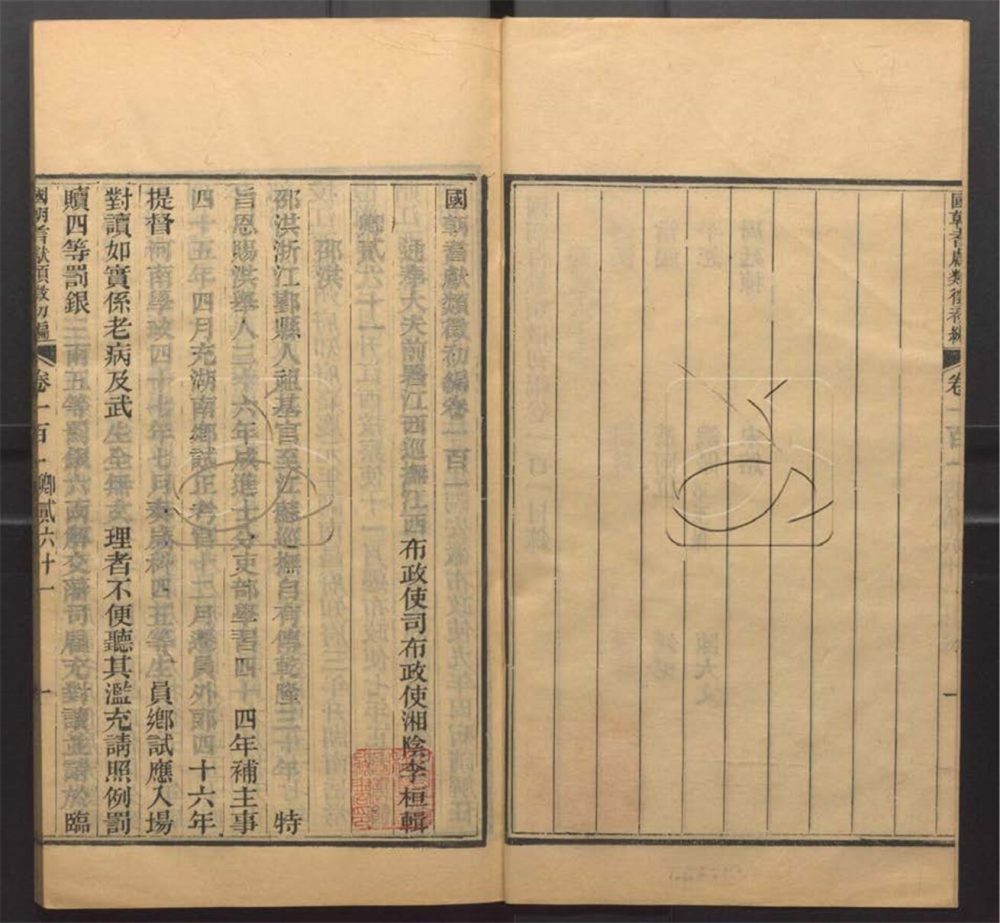 國朝耆獻類徵初編卷一百一
通奉大夫前署江西巡撫江西布政使司布政使湘陰李桓輯
卿貳六十一
邵洪
邵洪浙江鄞縣人祖基官至江蘇巡撫自有傳乾隆三十年 特
旨恩賜洪舉人三十六年成進士分吏部學習四十四年補主事
四十五年四月充湖南鄉試正考官十二月遷員外郎四十六年
提督河南學政四十七年七月奏歲科四五等生員鄉試應入場
對讀如實係老病及武生全無文理者不便聽其濫充請照例罰
贖四等罰銀三兩五等罰銀六兩解交藩司雇充對讀並請於臨
國朝耆獻類徵初編 卷一百一 卿貳六十一 一